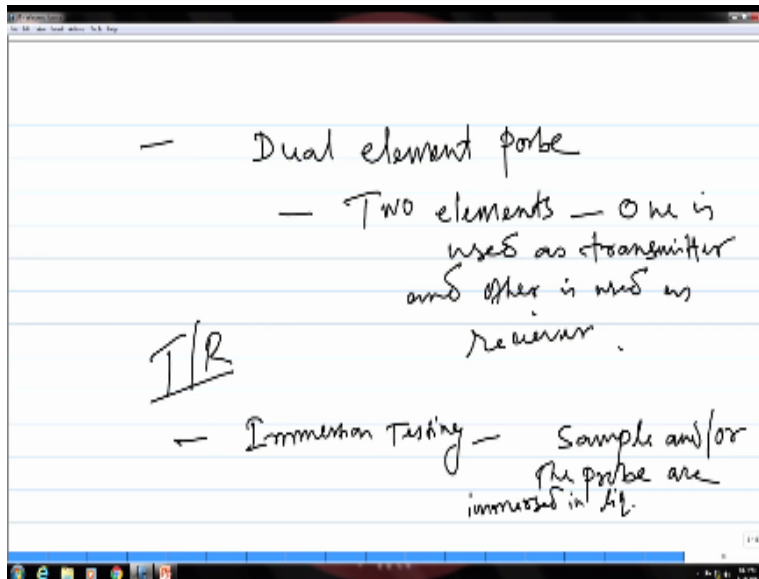 — Dual element porbe
— Two elements — One is
used as transmitter
and other is used as
reciever.
T/R
— Immersion Testing — Sample and/or
the probe are
immersed in liq.